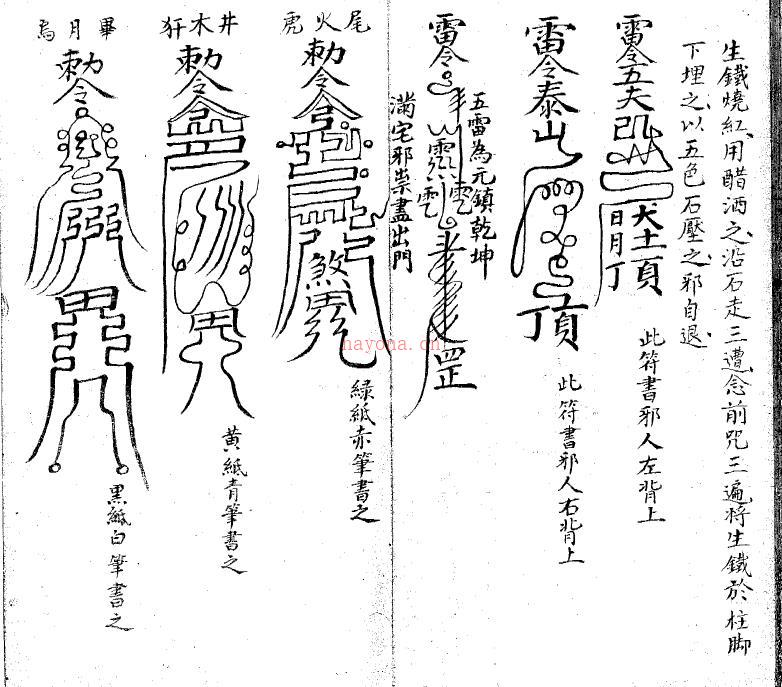 生鐵燒紅用醋洒之沿石走三遭念前咒三遍將生鐵於柱脚
下埋之以五色石壓之邪自退
雷令五夫
犬土頂
日月丁
此符書邪人左背上
雷令泰山
頂
此符書邪人右背上
雷令
五雷為元鎮乾坤
罡
滿宅邪祟盡出門
尾火虎
勅令
煞
緑紙赤筆書之
井木犴
勅令
黄紙青筆書之
畢月烏
勅令
黑紙白筆書之
hayona.cn